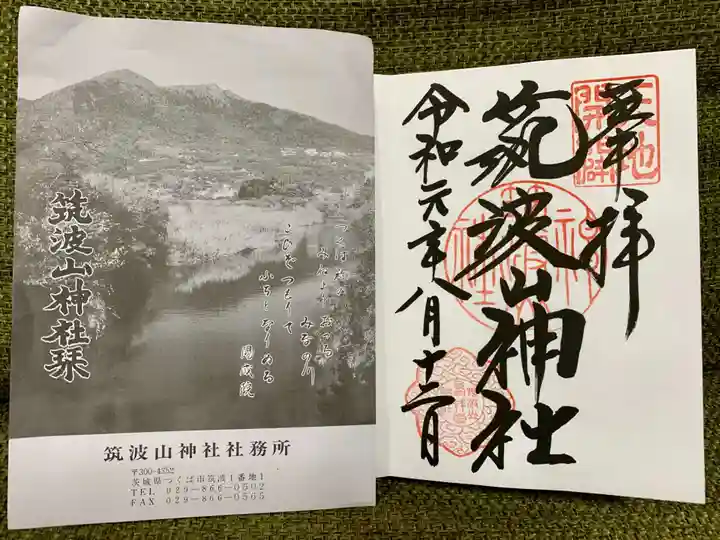 筑波山神社栞
つくばねの
みねよりおつる
みなの川
こひぞつもりて
ふちとなりぬる
陽成院
筑波山神社社務所
〒300-4352
茨城県つくば市筑波1番地1
TEL 029-866-0502
FAX 029-866-0565
奉拝
天地
開闢
筑波山神社
令和元年八月十二日